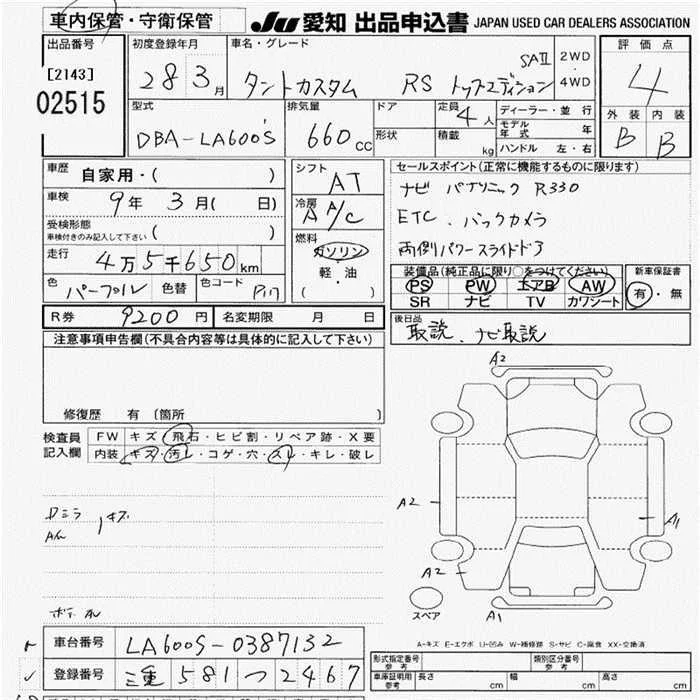 車内保管・守衛保管
JU 愛知 出品申込書 JAPAN USED CAR DEALERS ASSOCIATION
出品番号
[2143]
02515
初度登録年月
28 3月
車名・グレード
タントカスタム RS トップエディション SAⅡ
2WD
4WD
評価点
4
外装 内装
B B
型式
DBA-LA600S
排気量
660 CC
ドア
形状
定員
4人
積載 kg
ディーラー・並行
モデル年式 年
ハンドル 左・右
車歴
自家用・( )
車検
9年 3月( 日)
受検形態
車検付きのみ記入して下さい ( )
走行
4万5千650km
色
パープル
色替
色コード
P17
シフト
AT
冷房
A A/C
燃料
ガソリン
軽・油
( )
セールスポイント(正常に機能するものに限ります)
ナビ パナソニック R330
ETC、バックカメラ
両側パワースライドドア
装備品(純正品に限り○をつけてください)
PS PW エアB AW
SR ナビ TV カワシート
新車保証書
有・無
R券 9200円
名変期限 月 日
後日品
取説、ナビ取説
注意事項申告欄(不具合内容等は具体的に記入して下さい)
修復歴 有 〔箇所 〕
検査員記入欄
FW キズ・飛石・ヒビ割・リペア跡・X要
内装 キズ・汚レ・コゲ・穴・スレ・キレ・破レ
Dミラ キズ
A2
A2
A1
A2
A1
スペア
A-キズ E-エクボ U-凹み W-補修跡 S-サビ C-腐食 XX-交換済
車台番号 LA600S-0387132
登録番号 三重 581 つ 2467
形式指定番号
参考
類別区分番号
参考
車庫証明用
参考
長さ cm 幅 cm 高さ cm